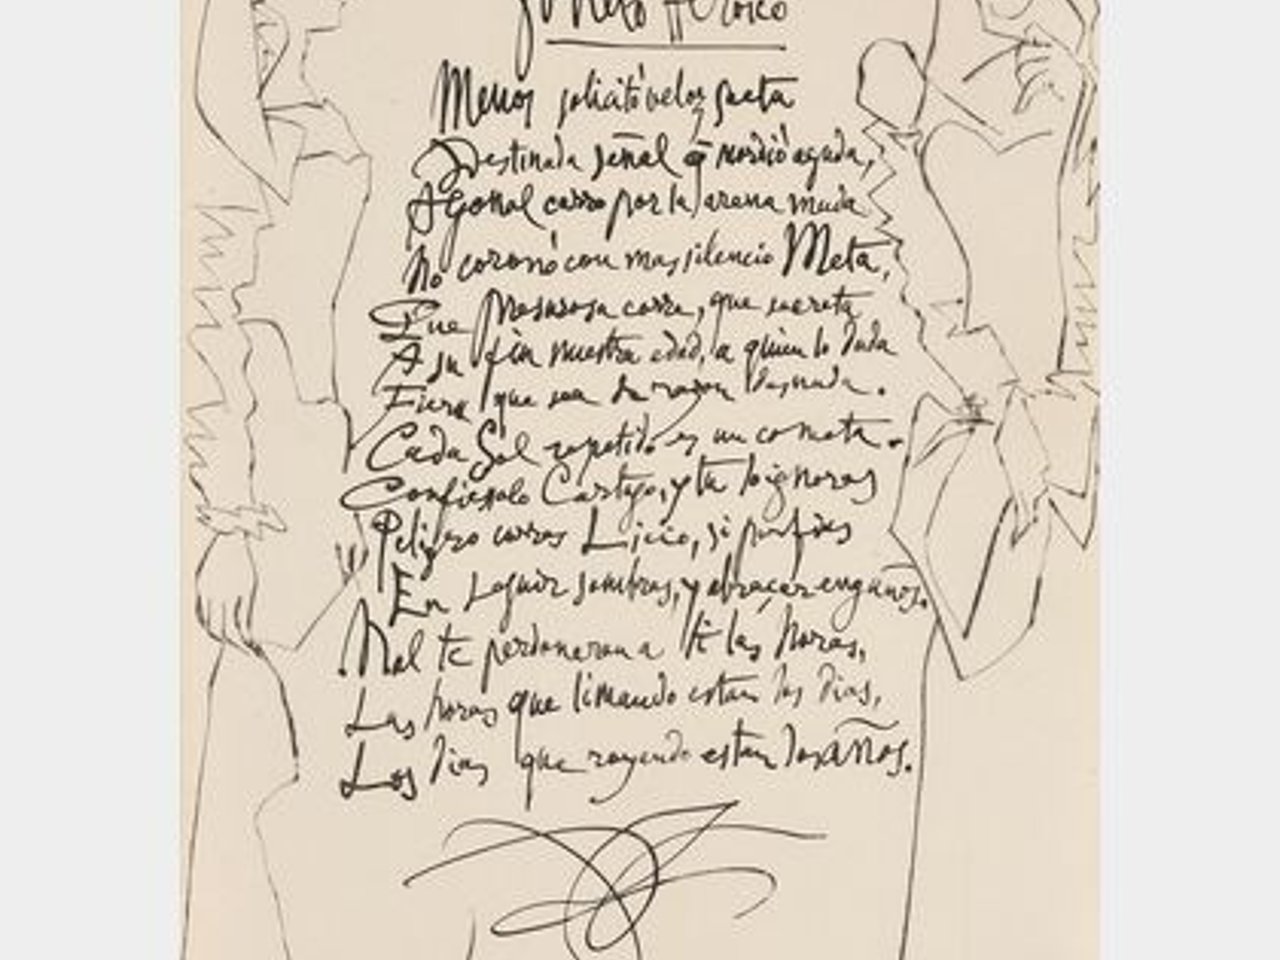 Soneto Heroico
Menos solicitó veloz saeta
Destinada señal q̄ mordió aguda,
Agonal carro por la arena muda
No coronó con mas silencio Meta,
Que presurosa corre, que secreta
A su fin nuestra edad, a quien lo duda
Fiera que sea de razon desnuda.
Cada Sol repetido es un cometa.
Confiesalo Cartago, y tu lo ignoras
Peligro corres Licio, si porfias
En seguir sombras, y abraçar engaños.
Mal te perdonaran a ti las horas,
Las horas que limando estan los dias,
Los dias que royendo estan los años.